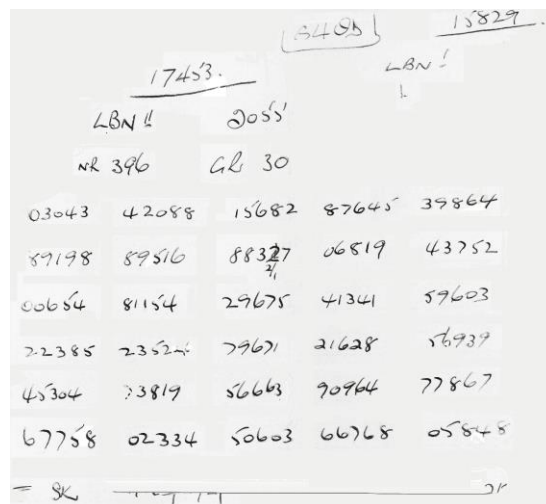 15829
17453.
LBN!
LBN!! 2055
NR 396 GR 30
03043 42088 15682 87645 39864
89198 89516 88327 06819 43752
2/1
00654 81154 29675 41341 59603
22385 79671 21628 56939
45304 73819 56663 90964 77867
67758 02334 50603 66768 05848
= SK